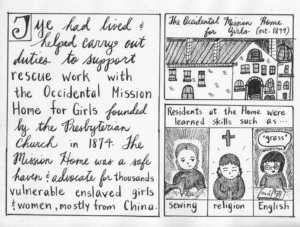 Tye had lived &
helped carry out
duties to support
rescue work with
the Occidental Mission
Home for Girls founded
by the Presbyterian
Church in 1874. The
Mission Home was a safe
haven & advocate for thousands
vulnerable enslaved girls
& women, mostly from China.
The Occidental Mission Home
for Girls (est. 1874)
Residents at the Home were
learned skills such as...
"grass"
sewing
religion
English